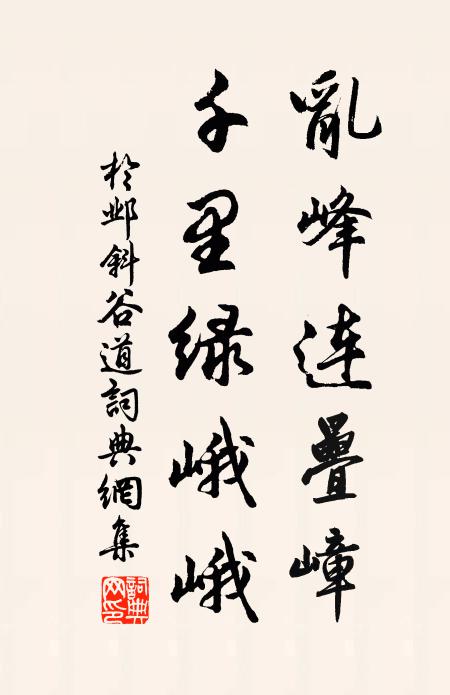 亂峰連疊嶂
千里綠峨峨
於鄴斜谷道詞典網集
詞典網印